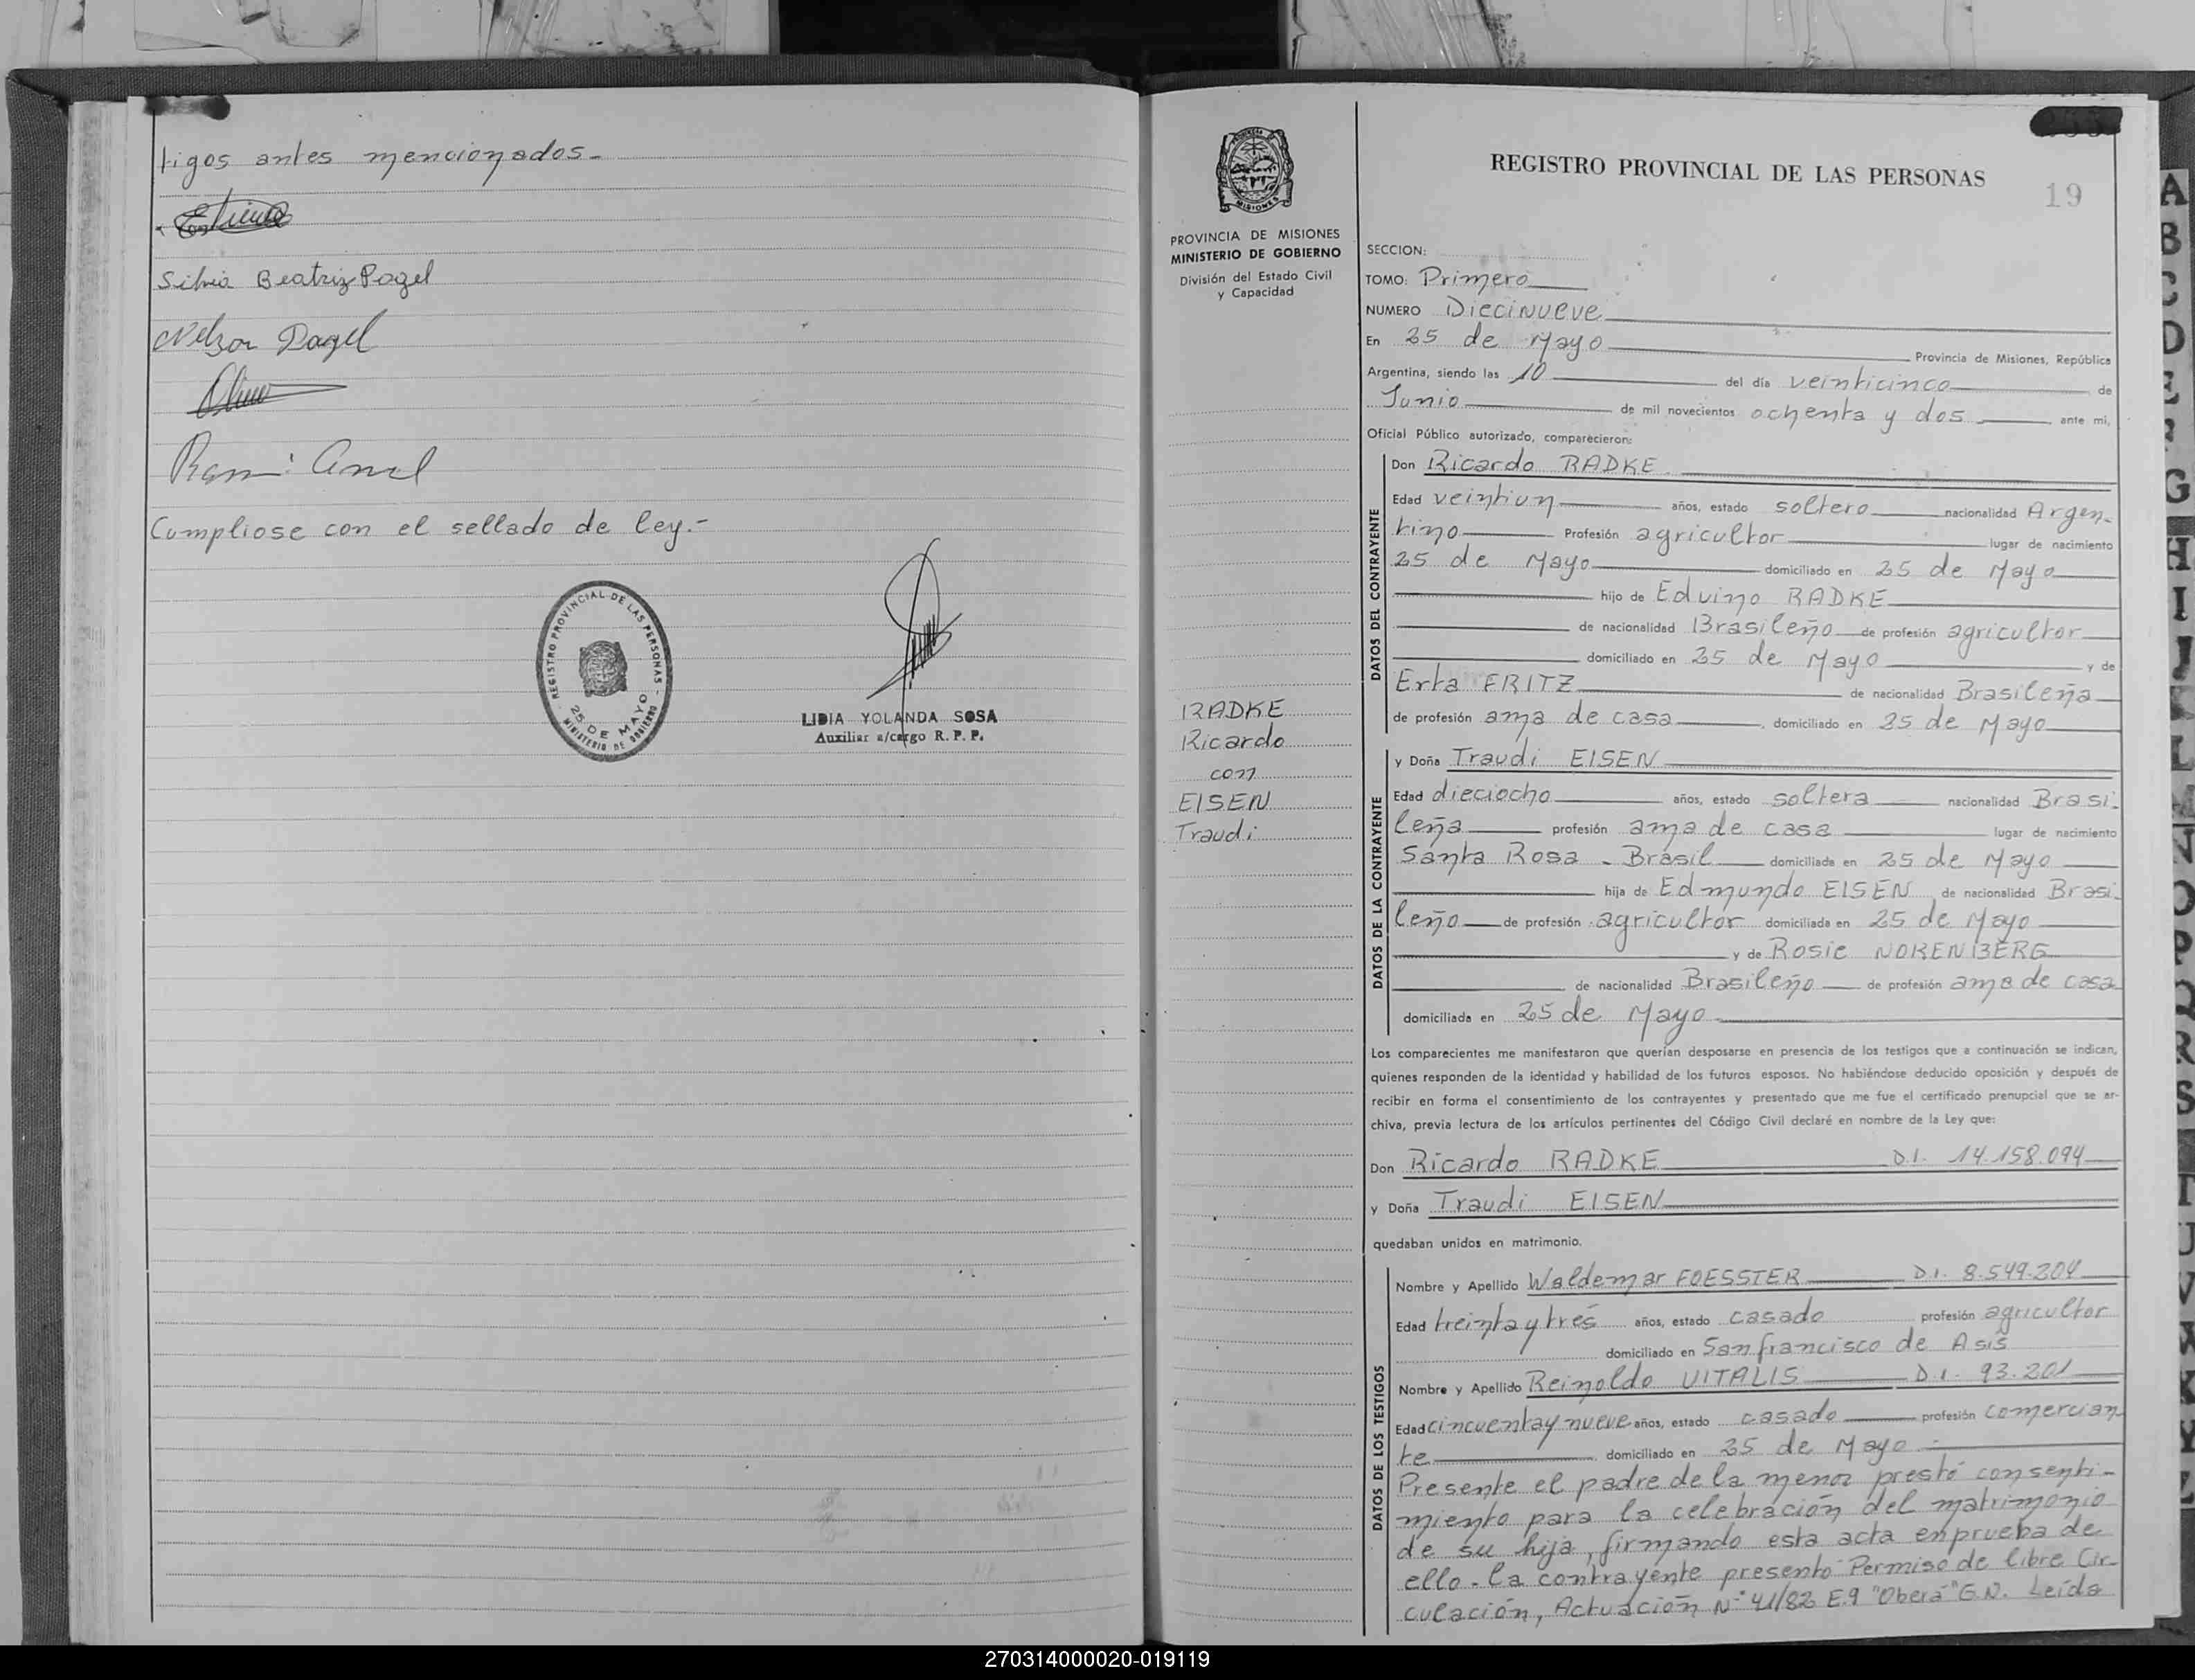 tigos antes mencionados.-
Silvia Beatriz Pagel
Nelson Pagel
Cumpliose con el sellado de ley.-
REGISTRO PROVINCIAL DE LAS PERSONAS
25 DE MAYO
MINISTERIO DE GOBIERNO
LIDIA YOLANDA SOSA
Auxiliar a/cargo R. P. P.
PROVINCIA DE MISIONES
MINISTERIO DE GOBIERNO
División del Estado Civil
y Capacidad
RADKE
Ricardo
con
EISEN
Traudi
REGISTRO PROVINCIAL DE LAS PERSONAS
19
SECCION:
TOMO: Primero
NUMERO Diecinueve
En 25 de Mayo Provincia de Misiones, República
Argentina, siendo las 10 del día veinticinco de
Junio de mil novecientos ochenta y dos ante mi,
Oficial Público autorizado, comparecieron:
DATOS DEL CONTRAYENTE
Don Ricardo RADKE
Edad veintiun años, estado soltero nacionalidad Argen-
tino Profesión agricultor lugar de nacimiento
25 de Mayo domiciliado en 25 de Mayo
hijo de Eduino RADKE
de nacionalidad Brasileño de profesión agricultor
domiciliado en 25 de Mayo y de
Erta FRITZ de nacionalidad Brasileña
de profesión ama de casa domiciliado en 25 de Mayo
DATOS DE LA CONTRAYENTE
y Doña Traudi EISEN
Edad dieciocho años, estado soltera nacionalidad Brasi-
leña profesión ama de casa lugar de nacimiento
Santa Rosa - Brasil domiciliada en 25 de Mayo
hija de Edmundo EISEN de nacionalidad Brasi-
leño de profesión agricultor domiciliada en 25 de Mayo
y de Rosie NORENBERG
de nacionalidad Brasileño de profesión ama de casa
domiciliada en 25 de Mayo
Los comparecientes me manifestaron que querían desposarse en presencia de los testigos que a continuación se indican,
quienes responden de la identidad y habilidad de los futuros esposos. No habiéndose deducido oposición y después de
recibir en forma el consentimiento de los contrayentes y presentado que me fue el certificado prenupcial que se ar-
chiva, previa lectura de los artículos pertinentes del Código Civil declaré en nombre de la Ley que:
Don Ricardo RADKE D.I. 14.158.094
y Doña Traudi EISEN
quedaban unidos en matrimonio.
DATOS DE LOS TESTIGOS
Nombre y Apellido Waldemar FOESSTER D.I. 8.549.204
Edad treinta y tres años, estado casado profesión agricultor
domiciliado en San francisco de Asis
Nombre y Apellido Reinoldo VITALIS D.I. 93.201
Edad cincuenta y nueve años, estado casado profesión comercian
te domiciliado en 25 de Mayo.-
Presente el padre de la menor prestó consenti-
miento para la celebración del matrimonio
de su hija, firmando esta acta en prueba de
ello. La contrayente presentó Permiso de libre Cir-
culación, Actuación Nº 41/82 E.9 "Oberá" G.N. Leída
A
B
C
D
E
F
G
H
I
J
K
L
M
N
O
P
Q
R
S
T
U
V
W
X
Y
Z
270314000020-019119